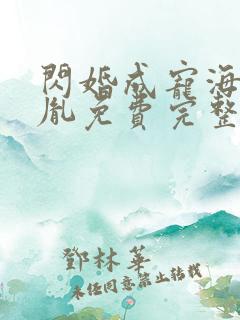 閃婚成寵海
胤免費完整
鄧林華
未經同意禁止轉載